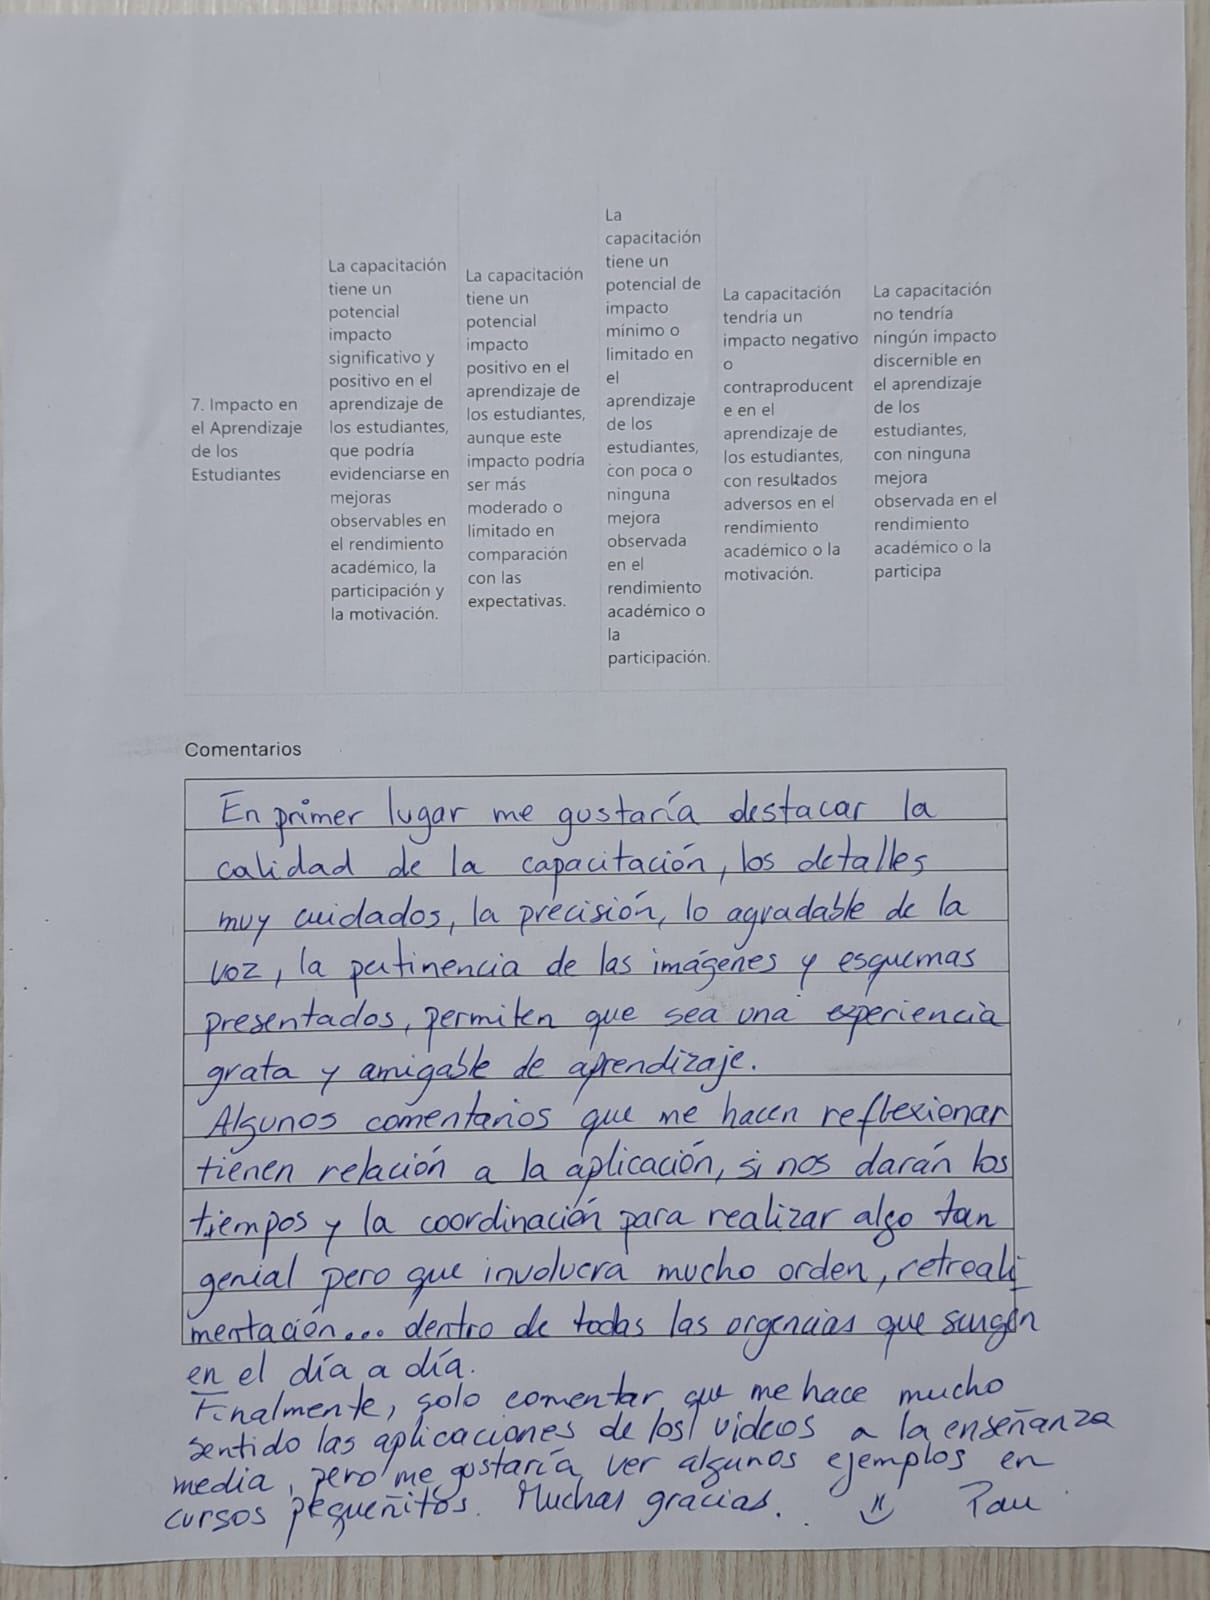 7. Impacto en
el Aprendizaje
de los
Estudiantes
La capacitación
tiene un
potencial
impacto
significativo y
positivo en el
aprendizaje de
los estudiantes,
que podría
evidenciarse en
mejoras
observables en
el rendimiento
académico, la
participación y
la motivación.
La capacitación
tiene un
potencial
impacto
positivo en el
aprendizaje de
los estudiantes,
aunque este
impacto podría
ser más
moderado o
limitado en
comparación
con las
expectativas.
La
capacitación
tiene un
potencial de
impacto
mínimo o
limitado en
el
aprendizaje
de los
estudiantes,
con poca o
ninguna
mejora
observada
en el
rendimiento
académico o
la
participación.
La capacitación
tendría un
impacto negativo
o
contraproducent
e en el
aprendizaje de
los estudiantes,
con resultados
adversos en el
rendimiento
académico o la
motivación.
La capacitación
no tendría
ningún impacto
discernible en
el aprendizaje
de los
estudiantes,
con ninguna
mejora
observada en el
rendimiento
académico o la
participa
Comentarios
En primer lugar me gustaría destacar la
calidad de la capacitación, los detalles
muy cuidados, la precisión, lo agradable de la
voz, la pertinencia de las imágenes y esquemas
presentados, permiten que sea una experiencia
grata y amigable de aprendizaje.
Algunos comentarios que me hacen reflexionar
tienen relación a la aplicación, si nos darán los
tiempos y la coordinación para realizar algo tan
genial pero que involucra mucho orden, retreali
mentación... dentro de todas las urgencias que surgen
en el día a día.
Finalmente, solo comentar que me hace mucho
sentido las aplicaciones de los videos a la enseñanza
media, pero me gustaría ver algunos ejemplos en
cursos pequeñitos. Muchas gracias. Pau